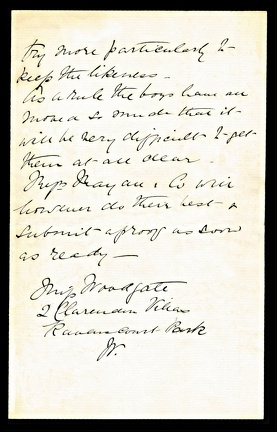 try more particularly to
keep the likeness _
As a rule the boys have all
moved so much that it
will be very difficult to get
them at all clear _
Mess Mayall & Co will
however do their best &
submit a proof as soon
as ready —
Miss Woodgate
2 Clarendon Villas
Ravenscourt Park
W.